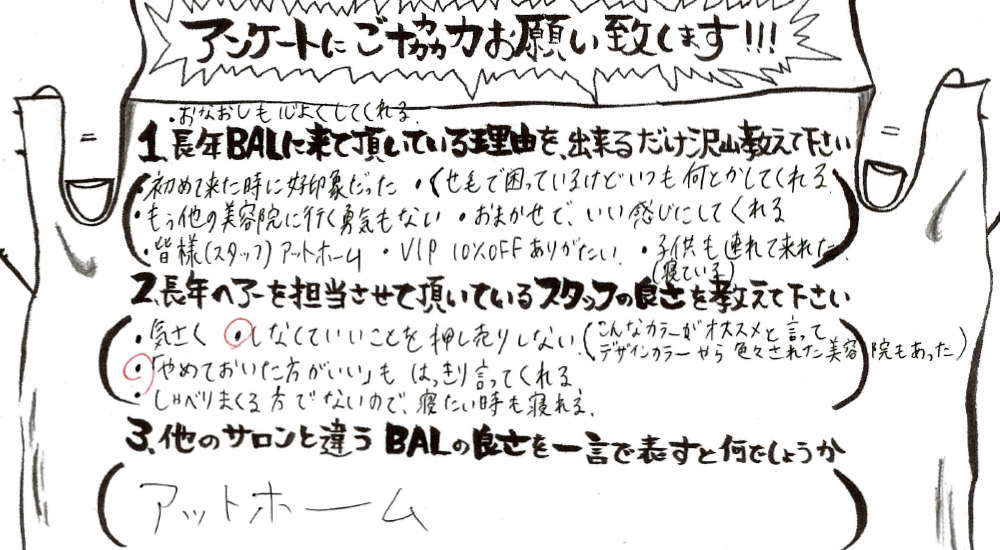 アンケートにご協力お願い致します!!!
・おなおしも心よくしてくれる。
1.長年BALに来て頂いている理由を、出来るだけ沢山教えて下さい
・初めて来た時に好印象だった ・くせ毛で困っているけどいつも何とかしてくれる。
・もう他の美容院に行く勇気もない ・おまかせで、いい感じにしてくれる
・皆様(スタッフ)アットホーム ・VIP 10%OFFありがたい。 ・子供も連れて来れた。
(寝ている)
2.長年ヘアーを担当させて頂いているスタッフの良さを教えて下さい
・気さく ・しなくていいことを押し売りしない。(こんなカラーがオススメと言って
デザインカラーやら色々された美容院もあった)
・「やめておいた方がいい」も はっきり言ってくれる
・しゃべりまくる方でないので、寝たい時も寝れる。
3.他のサロンと違うBALの良さを一言で表すと何でしょうか
アットホーム